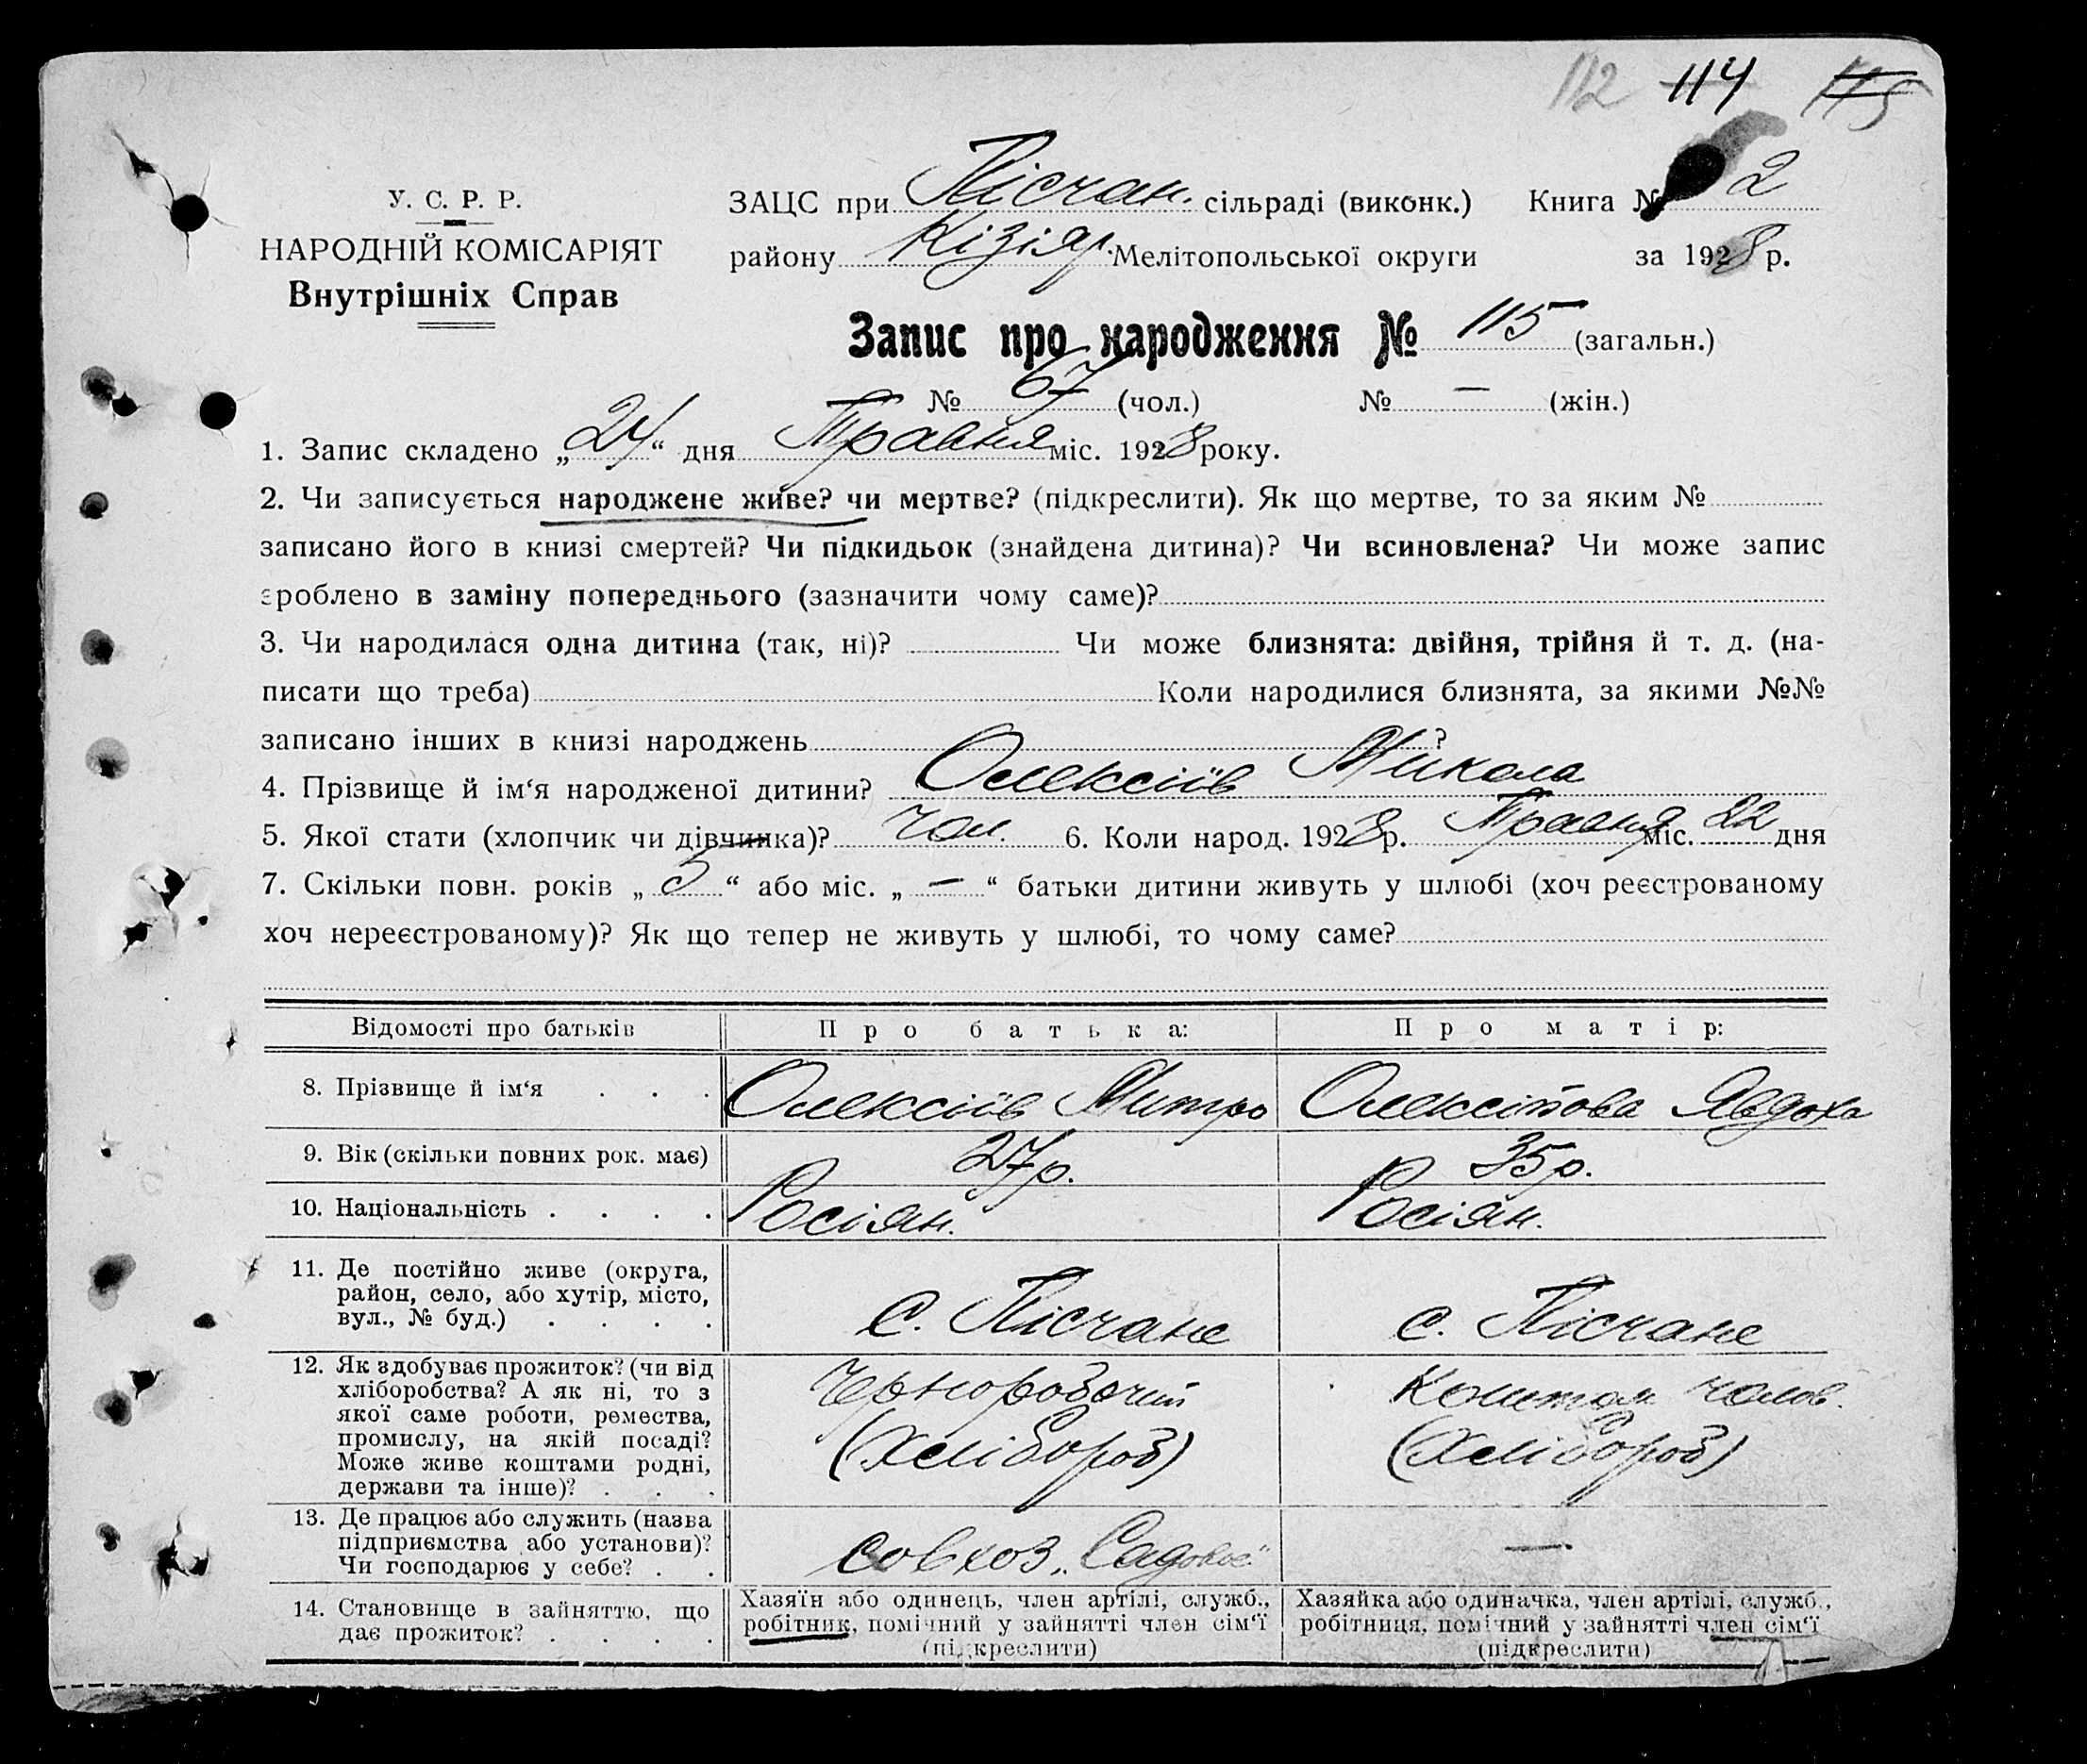 112 114 115
У. С. Р. Р.
НАРОДНІЙ КОМІСАРІЯТ
Внутрішніх Справ
ЗАЦС при Пісчан. сільраді (виконк.) Книга № 2
району Кізіяр. Мелітопольської округи за 1928 р.
Запис про народження № 115 (загальн.)
№ 67 (чол.) № — (жін.)
1. Запис складено „24“ дня Травня міс. 1928 року.
2. Чи записується народжене живе? чи мертве? (підкреслити). Як що мертве, то за яким №
записано його в книзі смертей? Чи підкидьок (знайдена дитина)? Чи всиновлена? Чи може запис
зроблено в заміну попереднього (зазначити чому саме)?
3. Чи народилася одна дитина (так, ні)? Чи може близнята: двійня, трійня й т. д. (на-
писати що треба) Коли народилися близнята, за якими №№
записано інших в книзі народжень ?
4. Прізвище й ім‘я народженої дитини? Олексіїв Микола
5. Якої стати (хлопчик чи дівчинка)? чол. 6. Коли народ. 1928 р. Травня міс. 22 дня
7. Скільки повн. років „5“ або міс. „—“ батьки дитини живуть у шлюбі (хоч реєстрованому
хоч нереєстрованому)? Як що тепер не живуть у шлюбі, то чому саме?
Відомості про батьків Про батька: Про матір:
8. Прізвище й ім‘я . . . Олексіїв Митро Олексіїова Явдоха
9. Вік (скільки повних рок. має) 27 р. 35 р.
10. Національність . . . . Росіян. Росіян.
11. Де постійно живе (округа,
район, село, або хутір, місто,
вул., № буд.) . . . . с. Пісчане с. Пісчане
12. Як здобуває прожиток? (чи від
хліборобства? А як ні, то з
якої саме роботи, ремества,
промислу, на якій посаді?
Може живе коштами родні,
держави та інше)? . . .
Чорноробочий
(Хлібороб)
Коштом чолов.
(Хлібороб)
13. Де працює або служить (назва
підприємства або установи)?
Чи господарює у себе? . .
совхоз „Садовое“ —
14. Становище в зайняттю, що
дає прожиток? . . . .
Хазяїн або одинець, член артілі, служб.,
робітник, помічний у зайнятті член сім‘ї
(підкреслити)
Хазяйка або одиначка, член артілі, служб.,
робітниця, помічний у зайнятті член сім‘ї
(підкреслити)